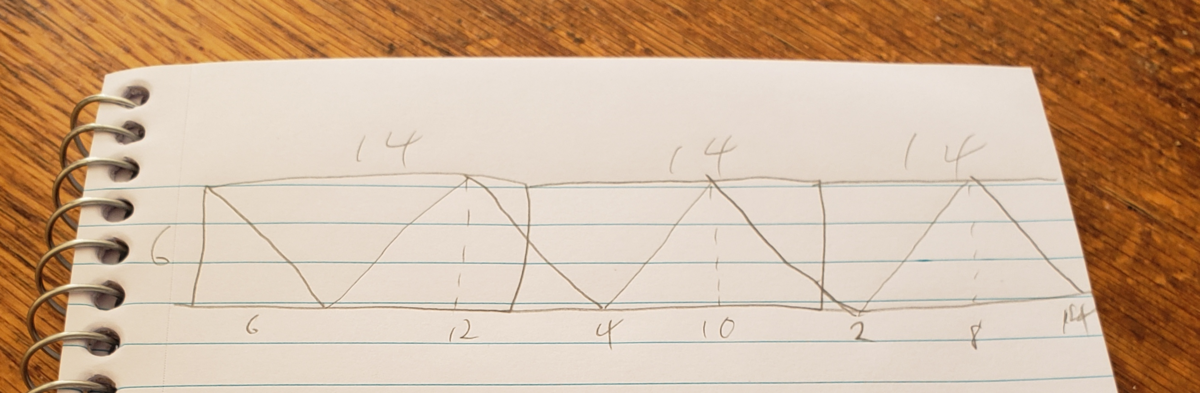 14 14 14
6
6 12 4 10 2 8 14